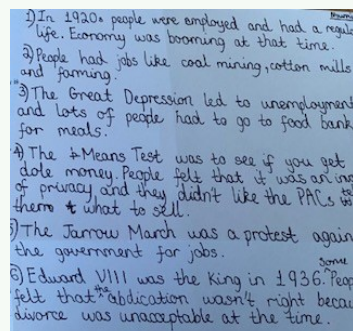 1) In 1920s people were employed and had a regula
life. Economy was booming at that time.
2) People had jobs like coal mining, cotton mills
and farming.
3) The Great Depression led to unemployment
and lots of people had to go to food bank
for meals.
4) The Means Test was to see if you get
dole money. People felt that it was an inv
of privacy and they didn't like the PACs
them what to sell.
5) The Jarrow March was a protest again
the government for jobs.
some
6) Edward VIII was the King in 1936. Peop
felt that the abdication wasn't right becau
divorce was unacceptable at the time.